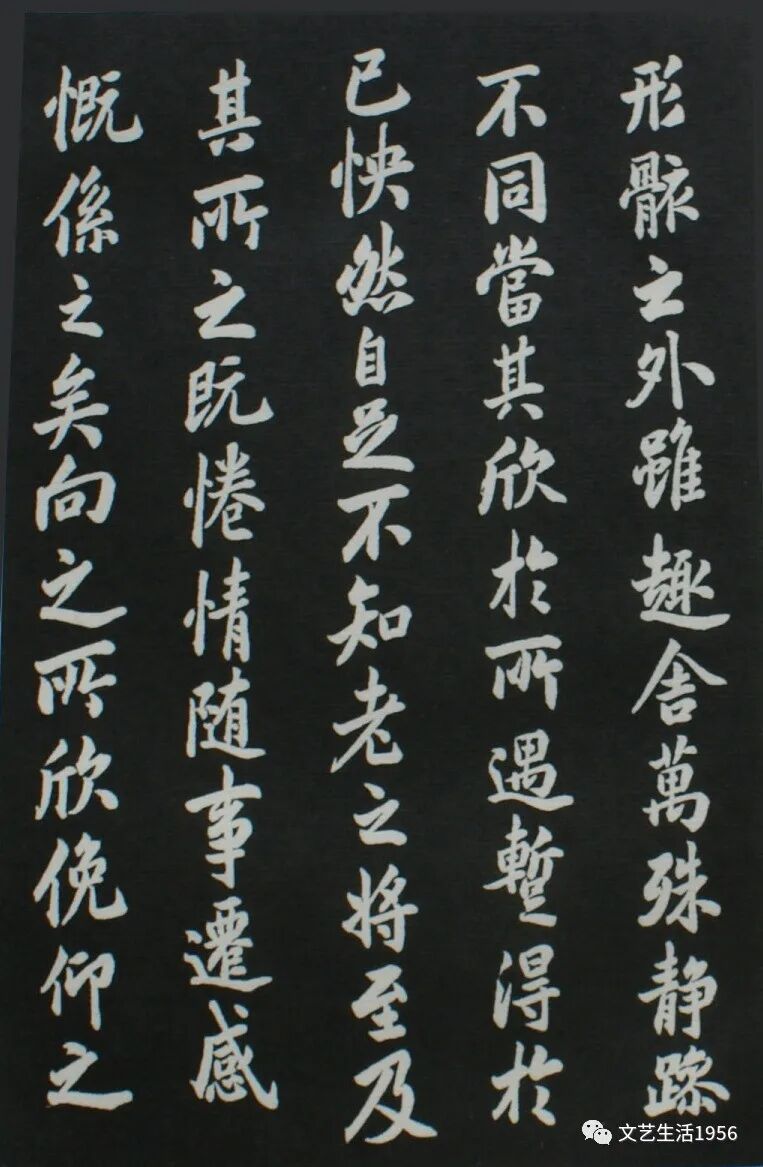 形骸之外雖趣舍萬殊静躁
不同當其欣於所遇暫得於
已怏然自足不知老之将至及
其所之既惓情随事遷感
慨係之矣向之所欣俛仰之
文艺生活1956